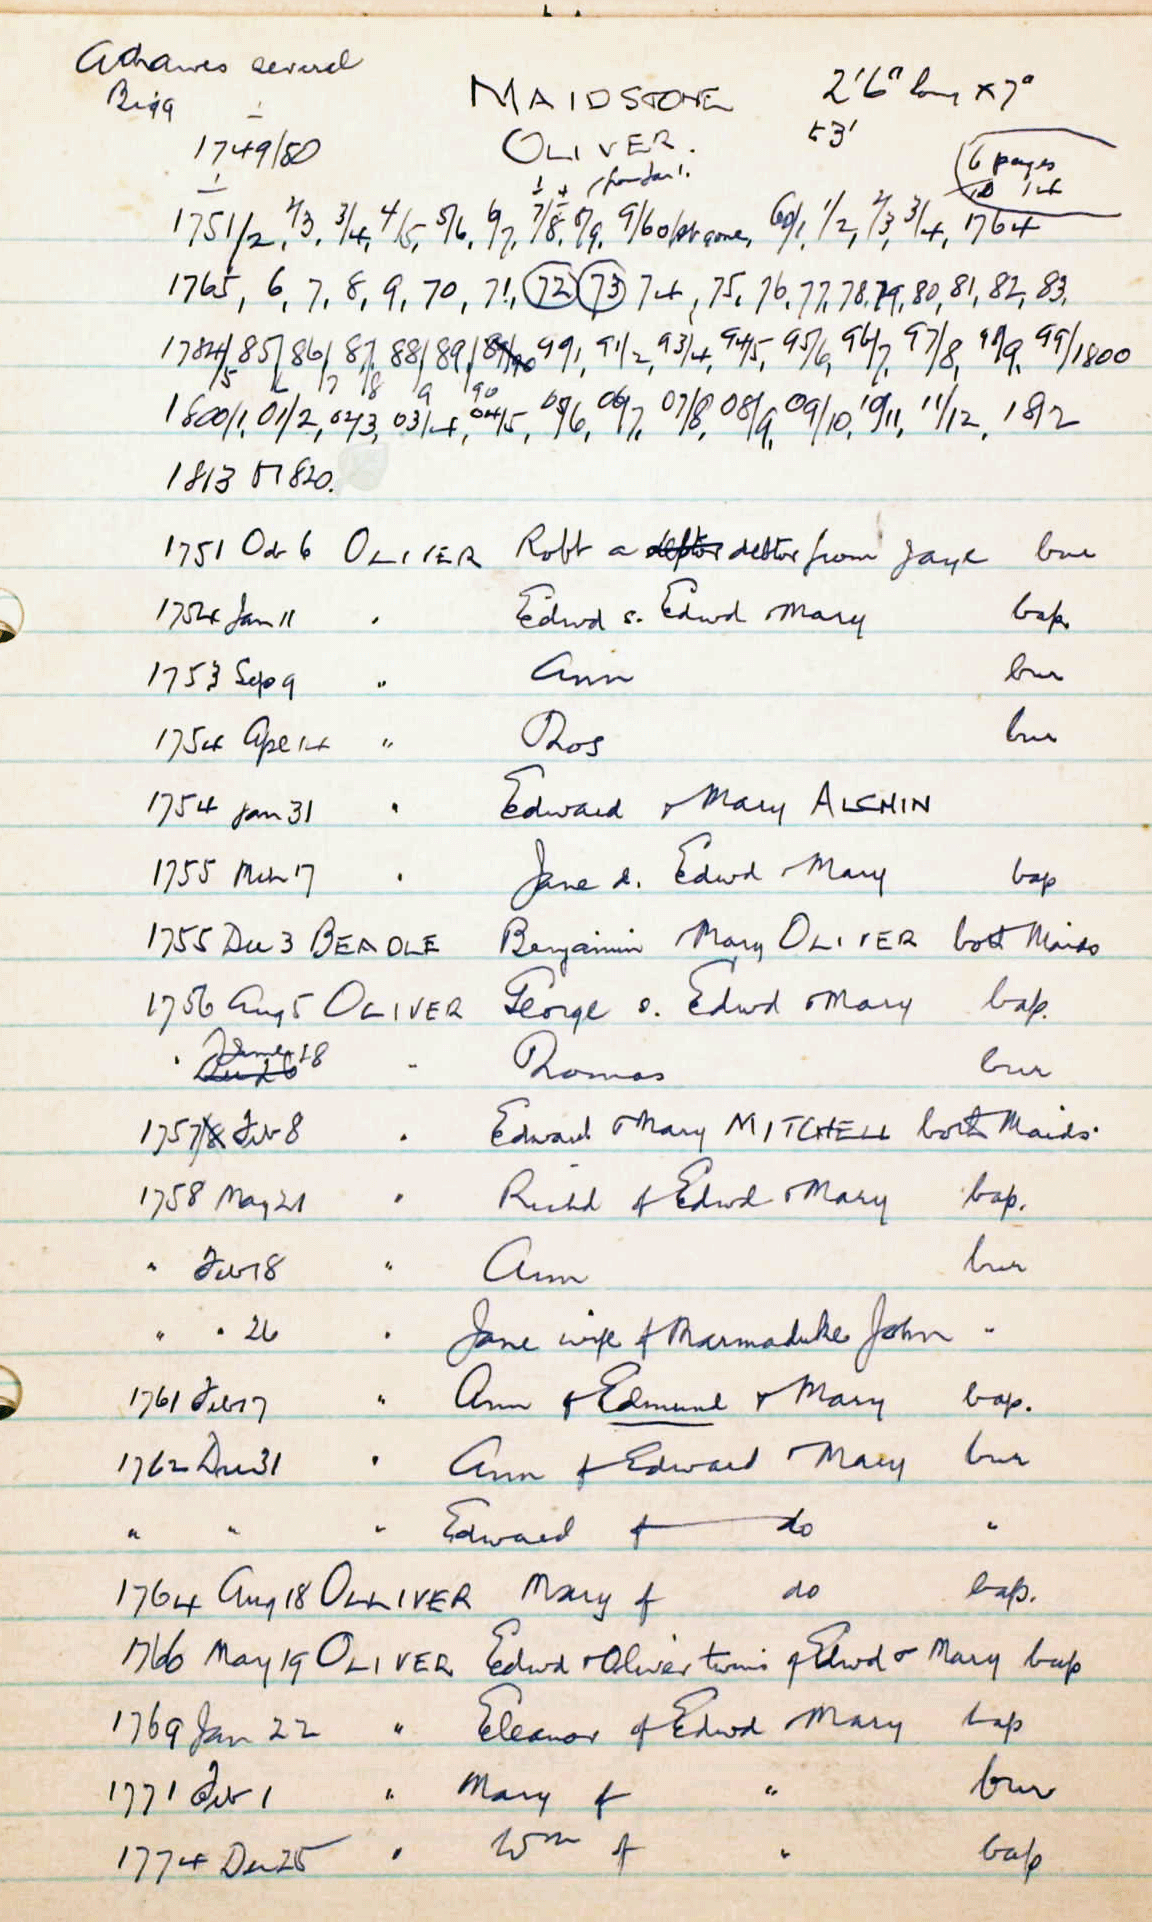 several
Bigg
MAIDSTONE
2'6" long x 7"
OLIVER.
1749/50
6 pages
1751/2, 2/3, 3/4, 4/5, 5/6, 6/7, 7/8, 8/9, 9/60 pt gone, 60/1, 1/2, 2/3, 3/4, 1764
1765, 6, 7, 8, 9, 70, 71, 72 73 74, 75, 76, 77, 78, 79, 80, 81, 82, 83,
1784/5 85/6 86/7 87/8 88/9 89/90 99/1, 91/2, 93/4, 94/5, 95/6, 96/7, 97/8, 98/9, 99/1800
1800/1, 01/2, 02/3, 03/4, 04/5, 05/6, 06/7, 07/8, 08/9, 09/10, 10/11, 11/12, 1812
1813 to 1820.
1751 Oct 6 OLIVER Robt a debtor from gaye bur
1754 Jan 11 " Edwd s. Edwd + Mary bap.
1753 Sep 9 " Ann bur
1754 Ape 14 " Thos bur
1754 Jan 31 " Edward + Mary ALCHIN
1755 Mch 17 " Jane d. Edwd + Mary bap
1755 Dec 3 BEADLE Benjamin + Mary OLIVER both Maids
1756 Aug 5 OLIVER George s. Edwd + Mary bap.
" June 18 " Thomas bur
1757/8 Feb 8 " Edward + Mary MITCHELL both Maids.
1758 May 21 " Richd of Edwd + Mary bap.
" Feb 18 " Ann bur
" " 26 " Jane wife of Marmaduke John "
1761 Feb 17 " Ann of Edmund + Mary bap.
1762 Dec 31 " Ann of Edward + Mary bur
" " " Edward of do "
1764 Aug 18 OLLIVER Mary of do bap.
1766 May 19 OLIVER Edwd + Oliver twins of Edwd + Mary bap
1769 Jan 22 " Eleanor of Edwd + Mary bap
1771 Feb 1 " Mary of " bur
1774 Dec 25 " Wm of " bap